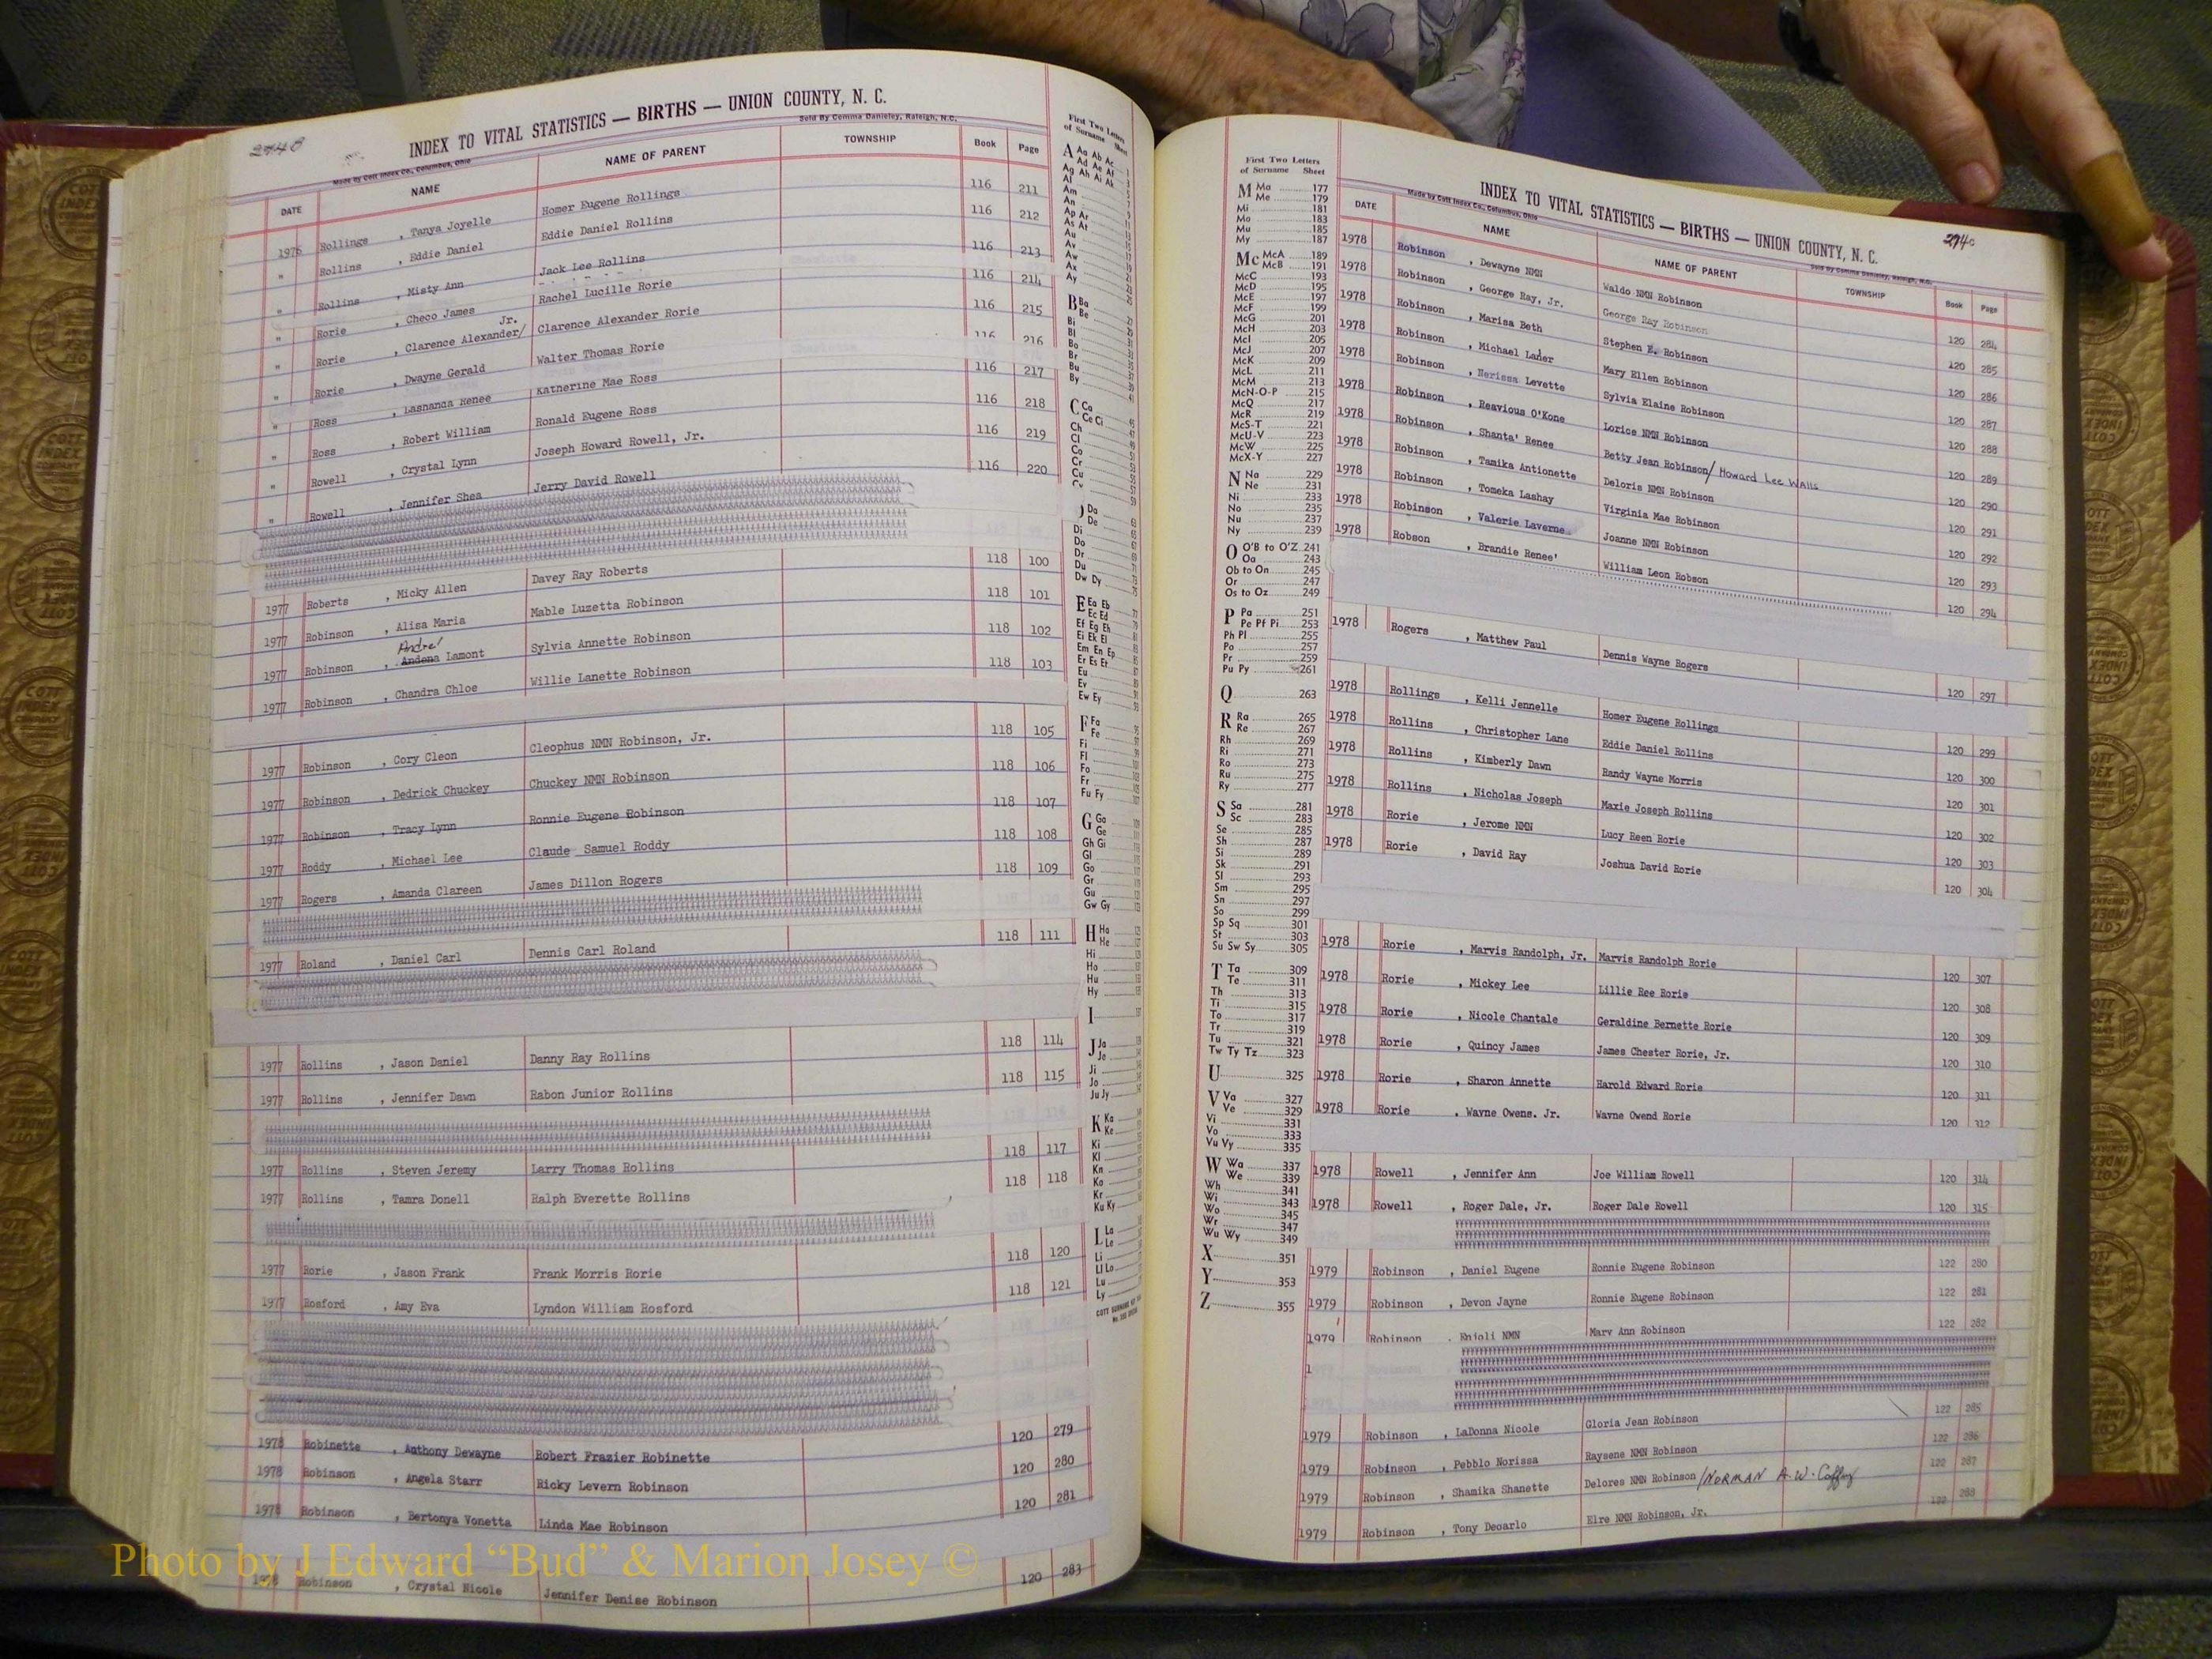 274B
INDEX TO VITAL STATISTICS — BIRTHS — UNION COUNTY, N. C.
Made by Cott Index Co., Columbus, Ohio
Sold By Comma Danieley, Raleigh, N.C.
DATE NAME NAME OF PARENT TOWNSHIP Book Page
1976 Rollings , Tanya Joyelle Homer Eugene Rollings 116 211
" Rollins , Eddie Daniel Eddie Daniel Rollins 116 212
" Rollins , Misty Ann Jack Lee Rollins 116 213
" Rorie , Checo James Rachel Lucille Rorie 116 214
" Rorie , Clarence Alexander/ Jr. Clarence Alexander Rorie 116 215
" Rorie , Dwayne Gerald Walter Thomas Rorie 116 216
" Ross , Lashanda Renee Katherine Mae Ross 116 217
" Ross , Robert William Ronald Eugene Ross 116 218
" Rowell , Crystal Lynn Joseph Howard Rowell, Jr. 116 219
" Rowell , Jennifer Shea Jerry David Rowell 116 220
1977 Roberts , Micky Allen Davey Ray Roberts 118 100
1977 Robinson , Alisa Maria Mable Luzetta Robinson 118 101
Andre'
1977 Robinson , Andena Lamont Sylvia Annette Robinson 118 102
1977 Robinson , Chandra Chloe Willie Lanette Robinson 118 103
1977 Robinson , Cory Cleon Cleophus NMN Robinson, Jr. 118 105
1977 Robinson , Dedrick Chuckey Chuckey NMN Robinson 118 106
1977 Robinson , Tracy Lynn Ronnie Eugene Robinson 118 107
1977 Roddy , Michael Lee Claude Samuel Roddy 118 108
1977 Rogers , Amanda Clareen James Dillon Rogers 118 109
1977 Roland , Daniel Carl Dennis Carl Roland 118 111
1977 Rollins , Jason Daniel Danny Ray Rollins 118 114
1977 Rollins , Jennifer Dawn Rabon Junior Rollins 118 115
1977 Rollins , Steven Jeremy Larry Thomas Rollins 118 117
1977 Rollins , Tamra Donell Ralph Everette Rollins 118 118
1977 Rorie , Jason Frank Frank Morris Rorie 118 120
1977 Rosford , Amy Eva Lyndon William Rosford 118 121
1978 Robinette , Anthony Dewayne Robert Frazier Robinette 120 279
1978 Robinson , Angela Starr Ricky Levern Robinson 120 280
1978 Robinson , Bertonya Vonetta Linda Mae Robinson 120 281
1978 Robinson , Crystal Nicole Jennifer Denise Robinson 120 283
First Two Letters
of Surname Sheet
A Aa Ab Ac
Ad Ae Af
Ag Ah Ai Ak
Al
Am
An
Ap Ar
As At
Au
Av
Aw
Ax
Ay
B Ba
Be
Bi
Bl
Bo
Br
Bu
By
C Ca
Ce Ci
Ch
Cl
Co
Cr
Cu
Da
De
Di
Do
Dr
Du
Dw Dy
E Ea Eb
Ec Ed
Ef Eg Eh
Ei Ek El
Em En Ep
Er Es Et
Eu
Ev
Ew Ey
F Fa
Fe
Fi
Fl
Fo
Fr
Fu Fy
G Ga
Ge
Gh Gi
Gl
Go
Gr
Gu
Gw Gy
H Ha
He
Hi
Ho
Hu
Hy
I
J Ja
Je
Ji
Jo
Ju Jy
K Ka
Ke
Ki
Kl
Kn
Ko
Kr
Ku Ky
L La
Le
Li
Ll Lo
Lu
Ly
274C
INDEX TO VITAL STATISTICS — BIRTHS — UNION COUNTY, N. C.
Made by Cott Index Co., Columbus, Ohio
Sold By Comma Danieley, Raleigh, N.C.
First Two Letters
of Surname Sheet
M Ma 177
Me 179
Mi 181
Mo 183
Mu 185
My 187
Mc McA 189
McB 191
McC 193
McD 195
McE 197
McF 199
McG 201
McH 203
McI 205
McJ 207
McK 209
McL 211
McM 213
McN-O-P 215
McQ 217
McR 219
McS-T 221
McU-V 223
McW 225
McX-Y 227
N Na 229
Ne 231
Ni 233
No 235
Nu 237
Ny 239
O O'B to O'Z 241
Oa 243
Ob to On 245
Or 247
Os to Oz 249
P Pa 251
Pe Pf Pi 253
Ph Pl 255
Po 257
Pr 259
Pu Py 261
Q 263
R Ra 265
Re 267
Rh 269
Ri 271
Ro 273
Ru 275
Ry 277
S Sa 281
Sc 283
Se 285
Sh 287
Si 289
Sk 291
Sl 293
Sm 295
Sn 297
So 299
Sp Sq 301
St 303
Su Sw Sy 305
T Ta 309
Te 311
Th 313
Ti 315
To 317
Tr 319
Tu 321
Tw Ty Tz 323
U 325
V Va 327
Ve 329
Vi 331
Vo 333
Vu Vy 335
W Wa 337
We 339
Wh 341
Wi 343
Wo 345
Wr 347
Wu Wy 349
X 351
Y 353
Z 355
DATE NAME NAME OF PARENT TOWNSHIP Book Page
1978 Robinson , Dewayne NMN Waldo NMN Robinson 120 284
1978 Robinson , George Ray, Jr. George Ray Robinson 120 285
1978 Robinson , Marisa Beth Stephen E. Robinson 120 286
1978 Robinson , Michael Lander Mary Ellen Robinson 120 287
1978 Robinson , Nerissa Levette Sylvia Elaine Robinson 120 288
1978 Robinson , Reavious O'Kone Lorice NMN Robinson 120 289
1978 Robinson , Shanta' Renee Betty Jean Robinson/ Howard Lee Walls 120 290
1978 Robinson , Tamika Antionette Deloris NMN Robinson 120 291
1978 Robinson , Tomeka Lashay Virginia Mae Robinson 120 292
1978 Robinson , Valerie Laverne Joanne NMN Robinson 120 293
1978 Robson , Brandie Renee' William Leon Robson 120 294
1978 Rogers , Matthew Paul Dennis Wayne Rogers 120 297
1978 Rollings , Kelli Jennelle Homer Eugene Rollings 120 299
1978 Rollins , Christopher Lane Eddie Daniel Rollins 120 300
1978 Rollins , Kimberly Dawn Randy Wayne Morris 120 301
1978 Rollins , Nicholas Joseph Maxie Joseph Rollins 120 302
1978 Rorie , Jerome NMN Lucy Reen Rorie 120 303
1978 Rorie , David Ray Joshua David Rorie 120 304
1978 Rorie , Marvis Randolph, Jr. Marvis Randolph Rorie 120 307
1978 Rorie , Mickey Lee Lillie Ree Rorie 120 308
1978 Rorie , Nicole Chantale Geraldine Bernette Rorie 120 309
1978 Rorie , Quincy James James Chester Rorie, Jr. 120 310
1978 Rorie , Sharon Annette Harold Edward Rorie 120 311
1978 Rorie , Wayne Owens, Jr. Wayne Owend Rorie 120 312
1978 Rowell , Jennifer Ann Joe William Rowell 120 314
1978 Rowell , Roger Dale, Jr. Roger Dale Rowell 120 315
1979 Robinson , Daniel Eugene Ronnie Eugene Robinson 122 280
1979 Robinson , Devon Jayne Ronnie Eugene Robinson 122 281
1979 Robinson , Enjoli NMN Mary Ann Robinson 122 282
1979 Robinson , LaDonna Nicole Gloria Jean Robinson 122 285
1979 Robinson , Pebblo Norissa Raysene NMN Robinson 122 286
1979 Robinson , Shamika Shanette Delores NMN Robinson/NORMAN A.W. Caffey 122 287
1979 Robinson , Tony Deoarlo Elre NMN Robinson, Jr. 122 288
Photo by J Edward “Bud” & Marion Josey ©